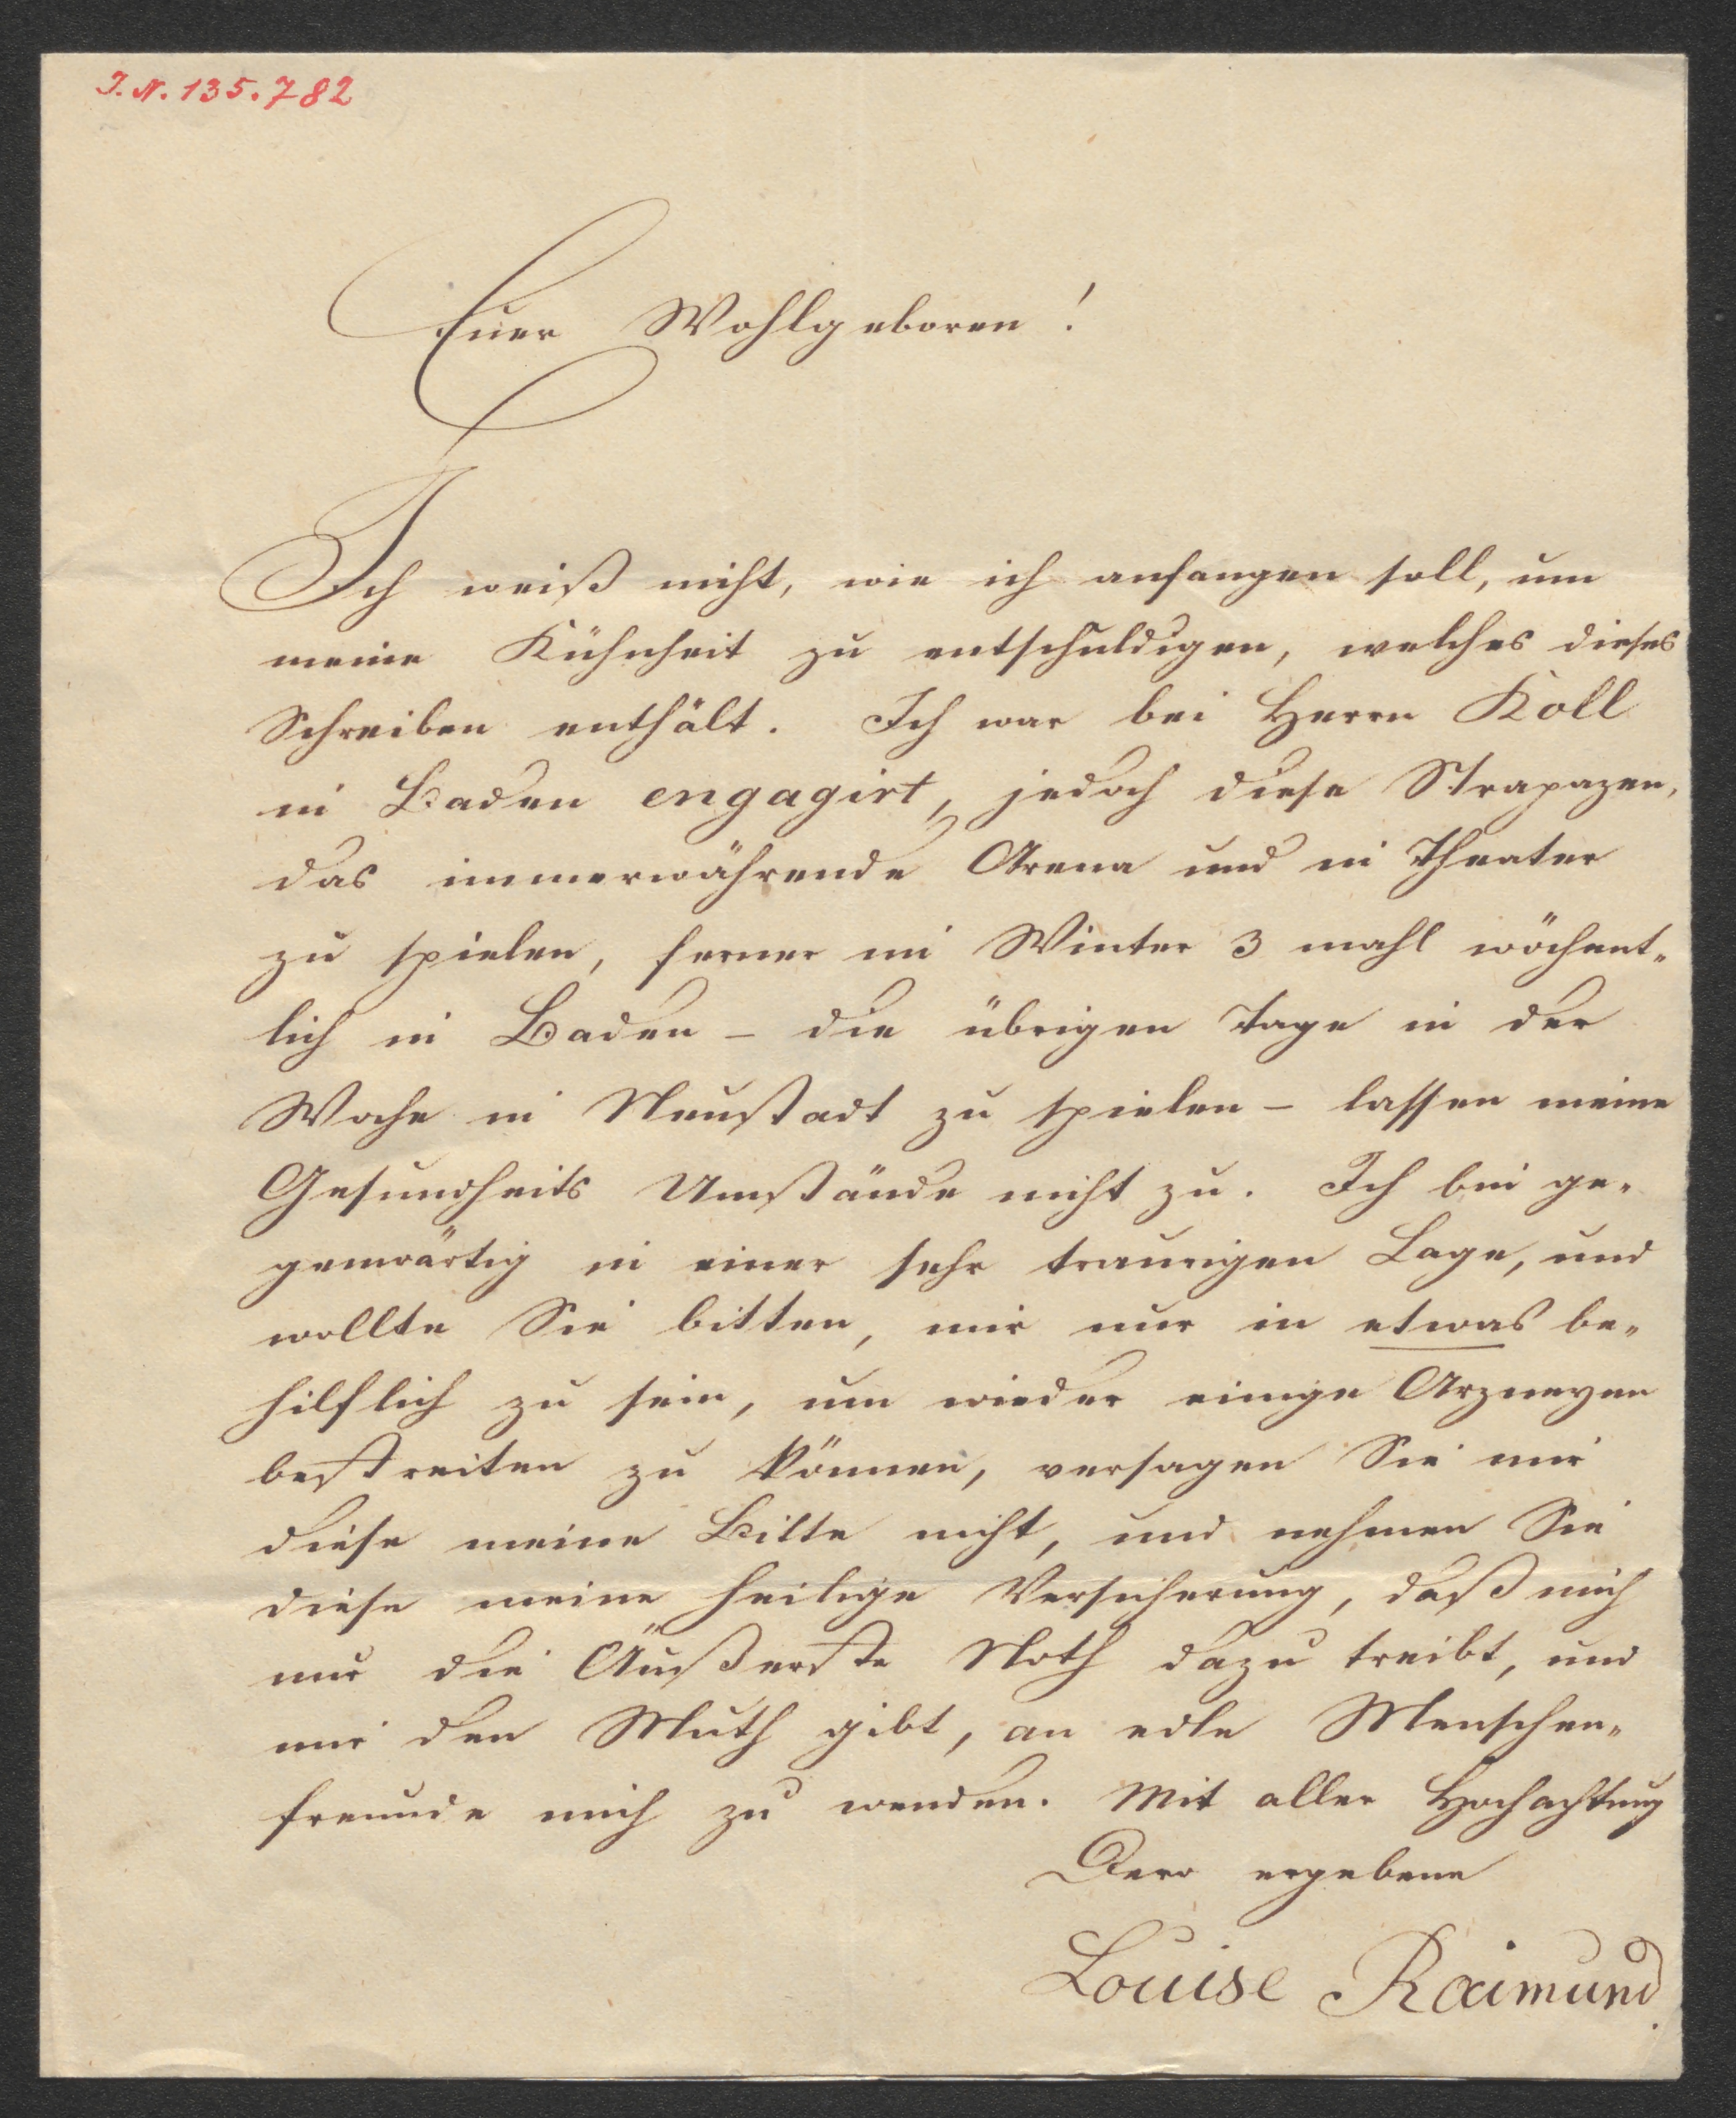 J. N. 135.782
Euer Wohlgeboren!
Ich weiß nicht, wie ich anfangen soll, um
meine Kühnheit zu entschuldigen, welches dieses
Schreiben enthält. Ich war bei Herrn Koll
in Baden engagirt, jedoch diese Strapazen,
das immerwährende Arena und in Theater
zu spielen, ferner im Winter 3 mahl wöchent-
lich in Baden – die übrigen Tage in der
Woche in Neustadt zu spielen – lassen meine
Gesundheits Umstände nicht zu. Ich bin ge-
genwärtig in einer sehr traurigen Lage, und
wollte Sie bitten, mir nur in etwas be-
hilflich zu sein, um wieder einige Arzneyen
bestreiten zu können, versagen Sie mir
diese meine Bitte nicht, und nehmen Sie
diese meine heilige Versicherung, daß mich
nur die Äußerste Noth dazu treibt, und
mir den Muth gibt, an edle Menschen-
freunde mich zu wenden. Mit aller Hochachtung
Dero ergebene
Louise Raimund.